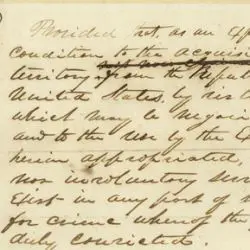 Provided that, as an exp
condition to the acquis
territory from the Repub
United States, by virt
which may be negoti
and to the use by the E
herein appropriated,
nor involuntary serv
exist in any part of s
for crime, whereof the
duly convicted.